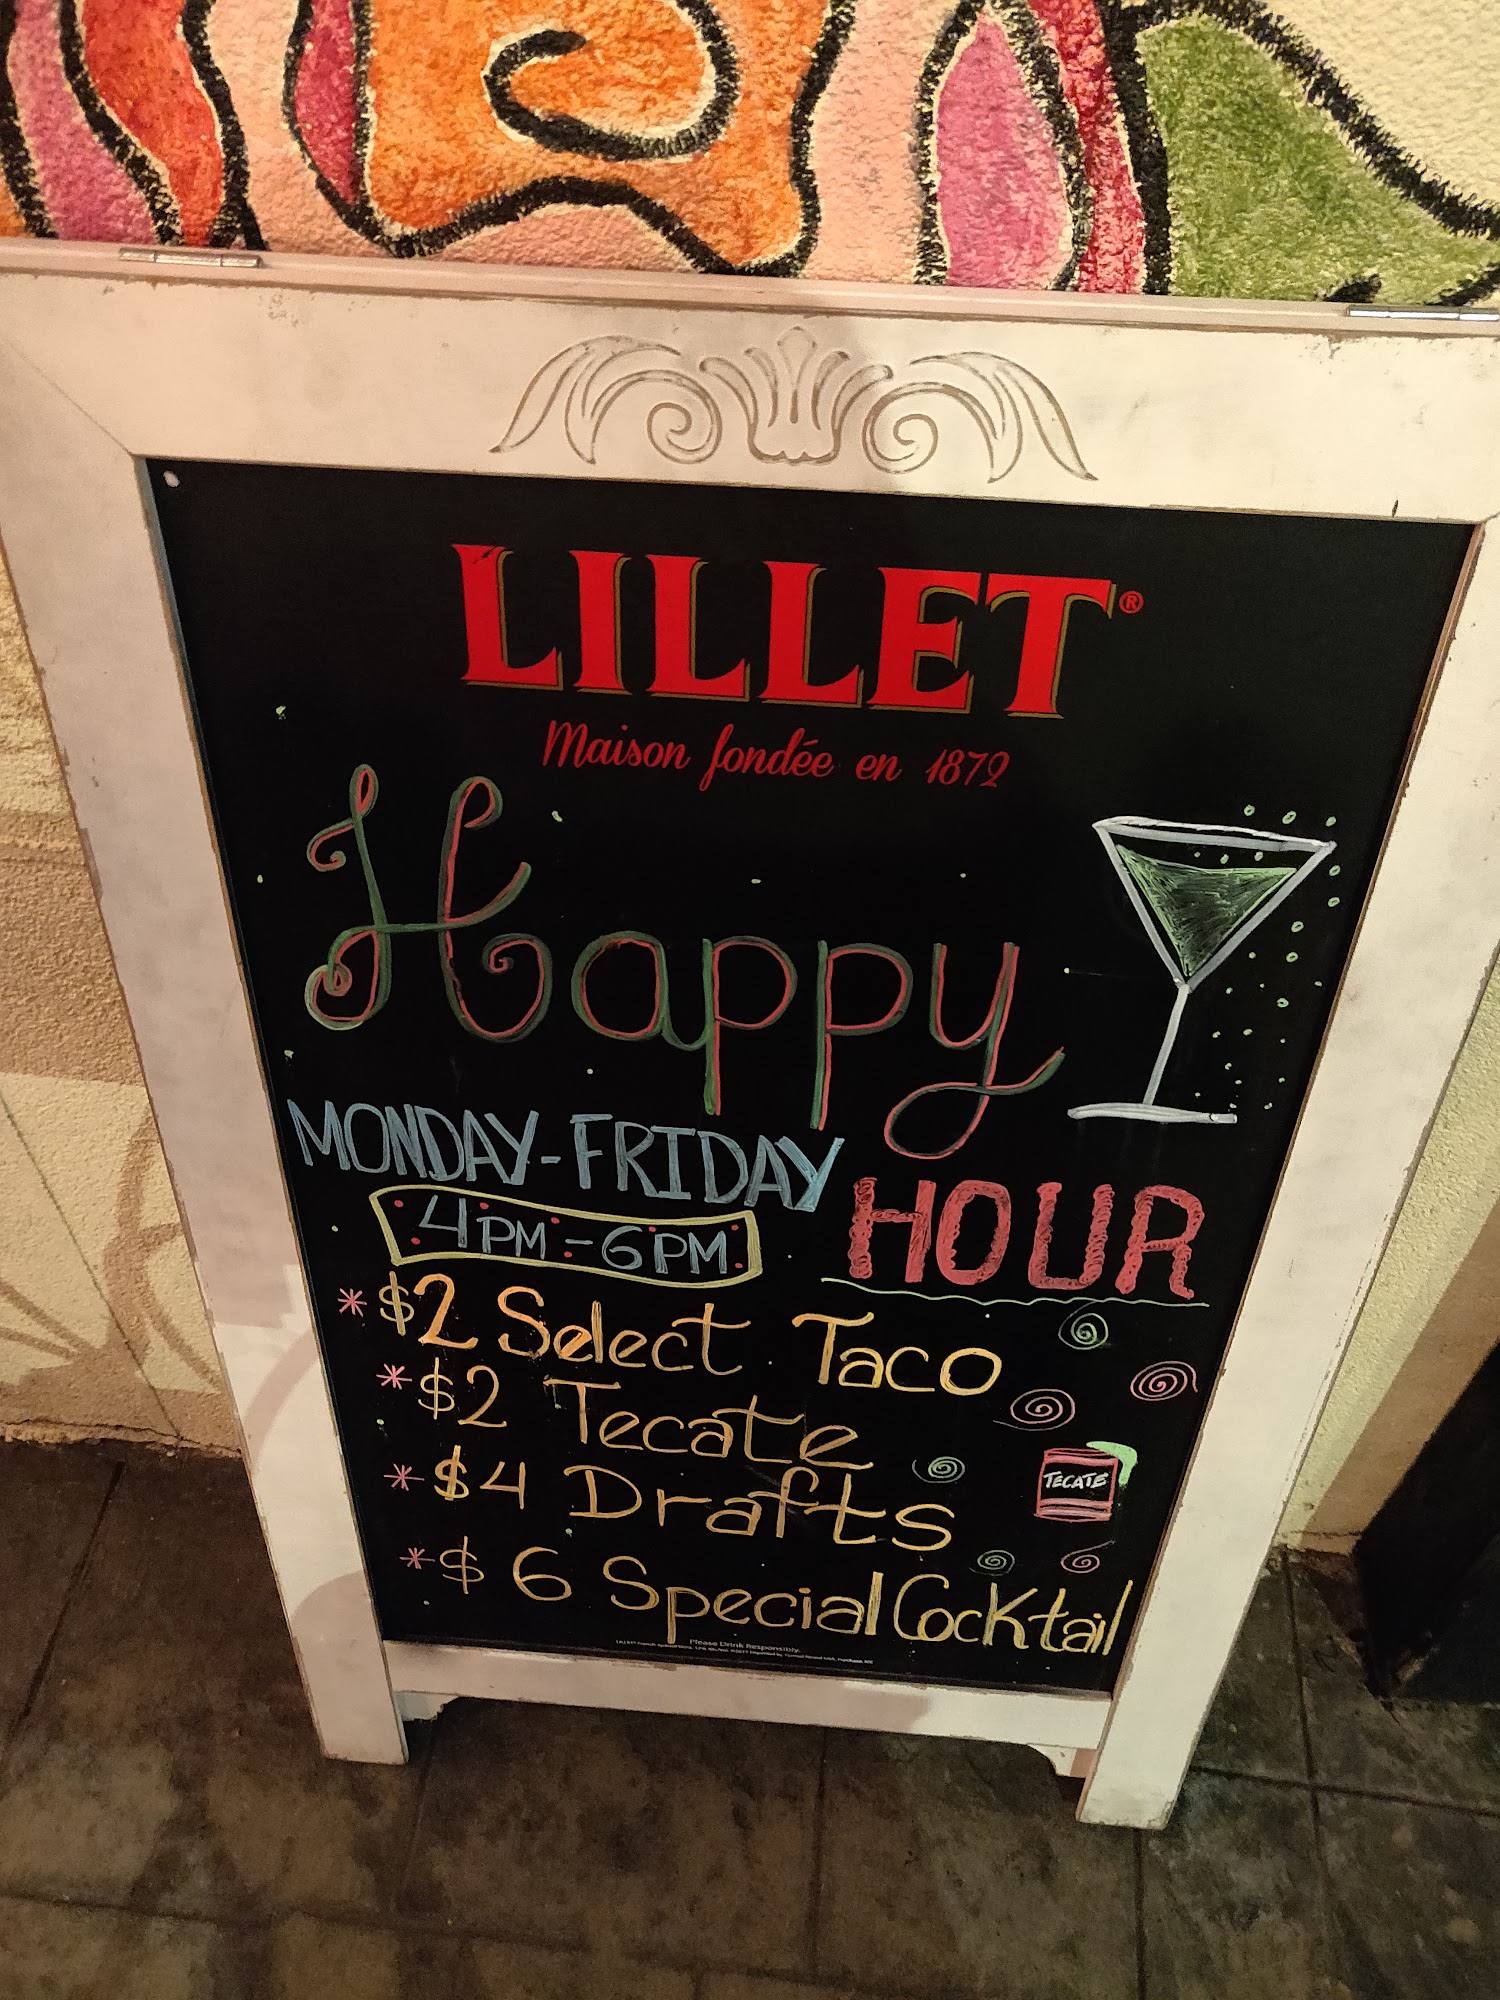 LILLET®
Maison fondée en 1872
Happy
HOUR
MONDAY-FRIDAY
4PM-6PM
* $2 Select Taco
* $2 Tecate
* $4 Drafts
* $6 Special Cocktail
TECATE
Please Drink Responsibly.